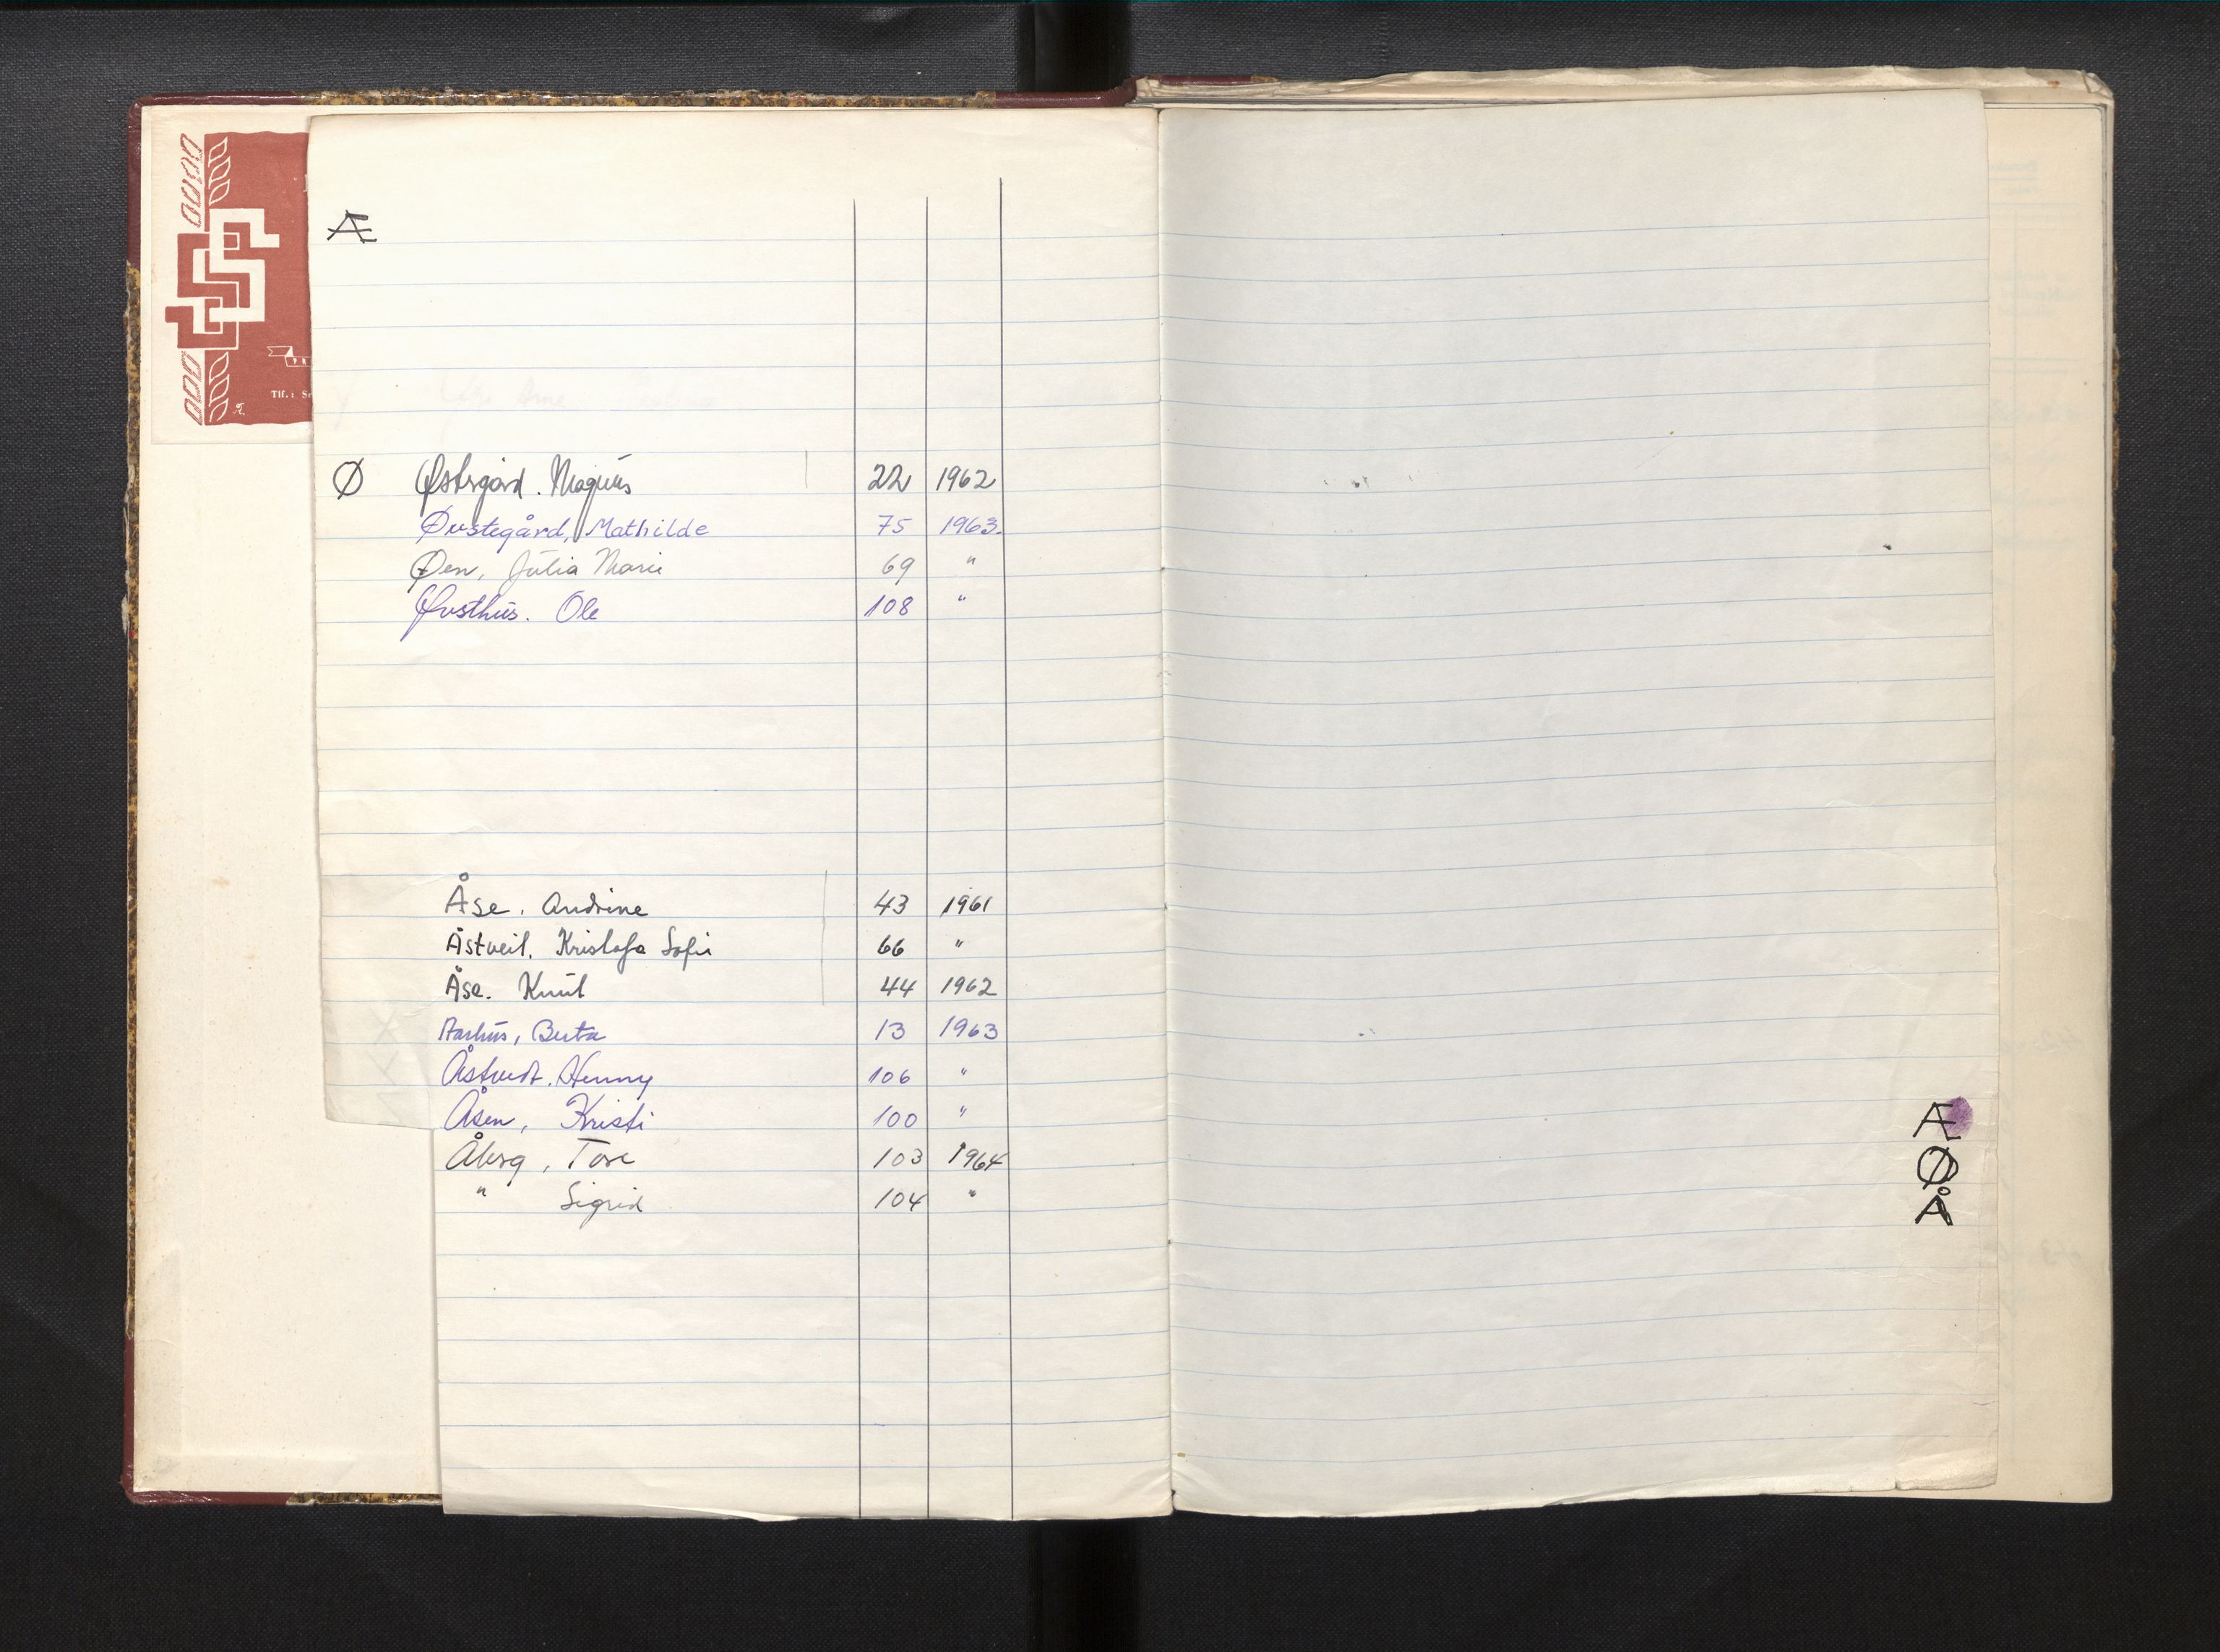 Æ
Ø Østergård. Magnus 22 1962
Øvstegård, Mathilde 75 1963.
Øen, Julia Marie 69 "
Øvsthus. Ole 108 "
Åse. Andrine 43 1961
Åstveit. Kristofa Sofie 66 "
Åse. Knut 44 1962
Aarhus, Berta 13 1963
Åstvedt. Henny 106 "
Åsen, Kristi 100 "
Åberg, Tore 103 1964
" Sigrid 104 "
Tlf.:
Æ
Ø
Å